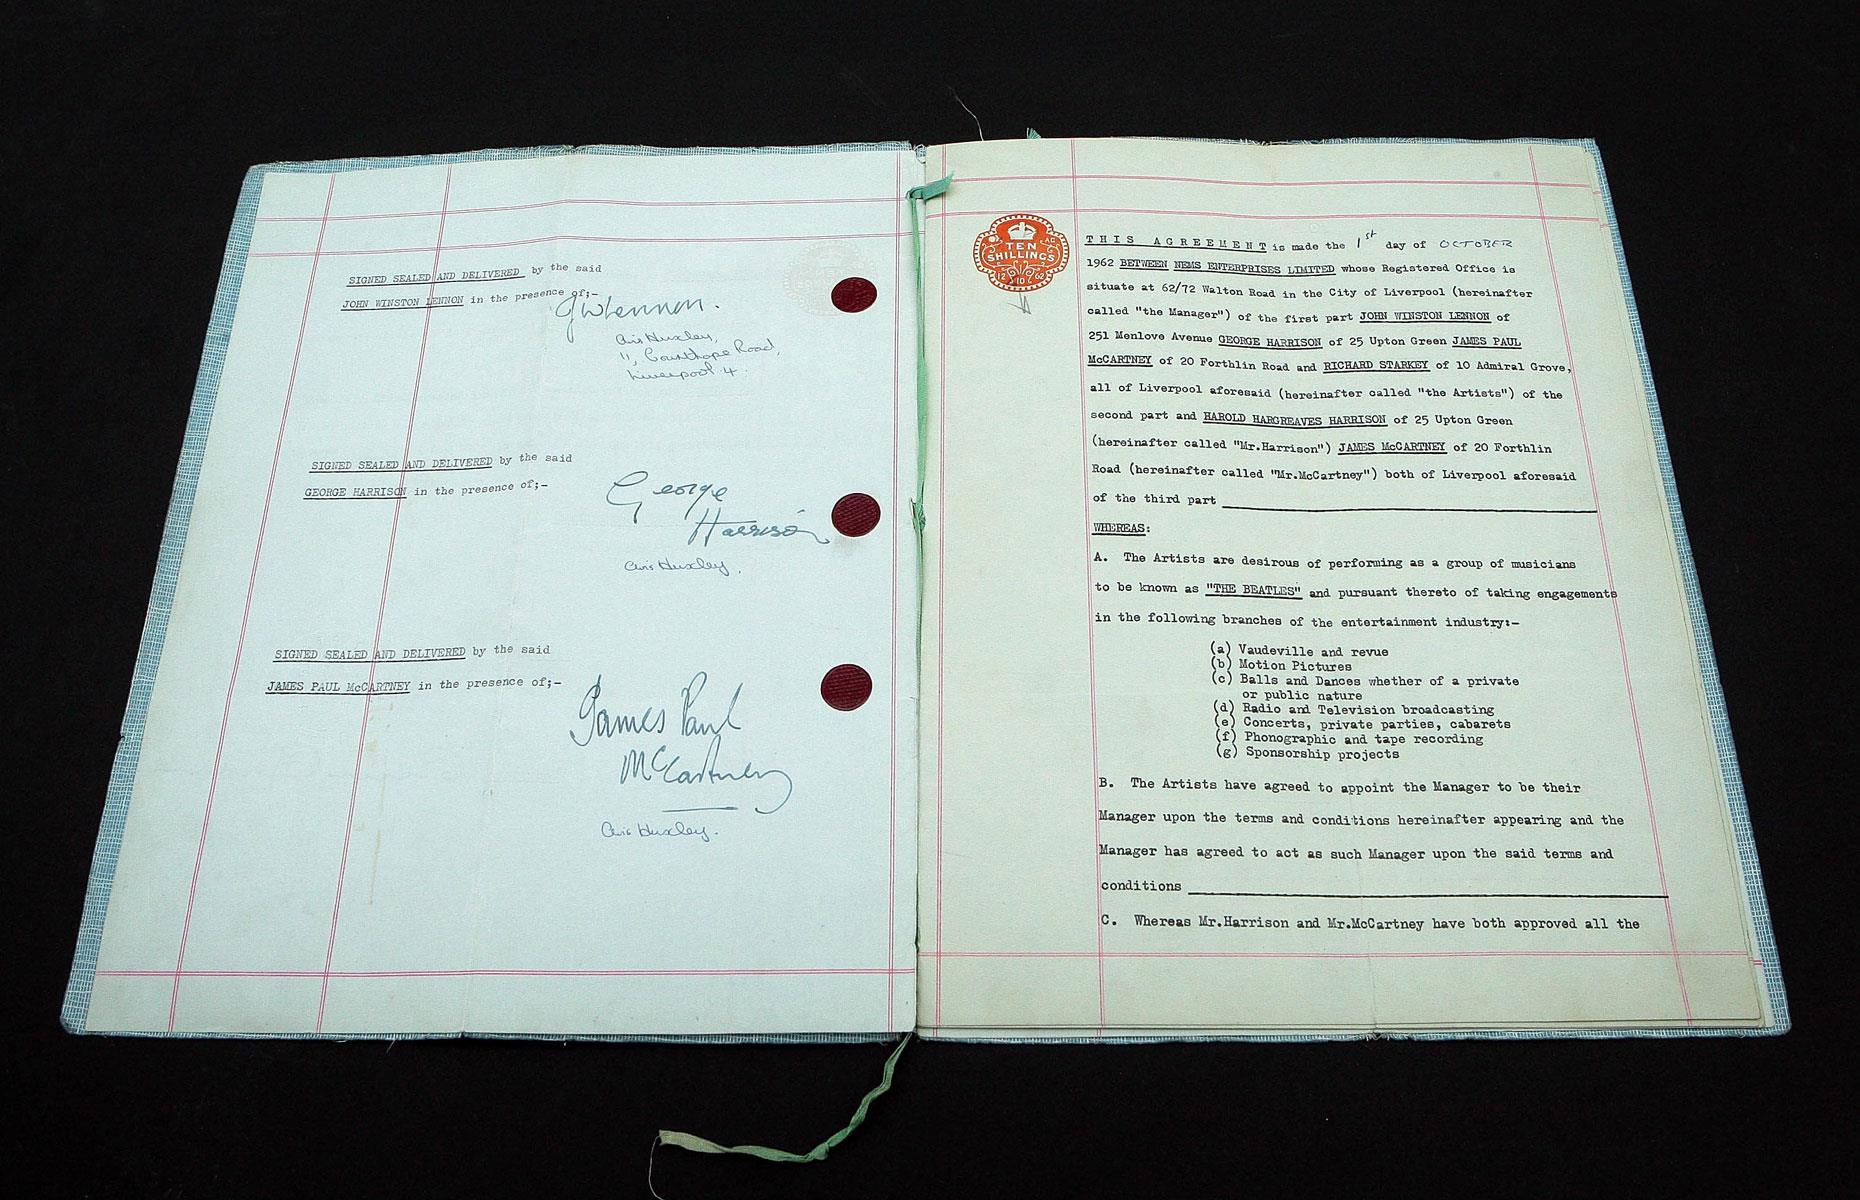 SIGNED SEALED AND DELIVERED by the said
JOHN WINSTON LENNON in the presence of;-
JWLennon.
Avis Huxley,
11, Courthope Road,
Liverpool 4.
SIGNED SEALED AND DELIVERED by the said
GEORGE HARRISON in the presence of;-
George
Harrison
Avis Huxley.
SIGNED SEALED AND DELIVERED by the said
JAMES PAUL McCARTNEY in the presence of;-
James Paul
McCartney
Avis Huxley.
TEN
SHILLINGS
THIS AGREEMENT is made the 1st day of OCTOBER
1962 BETWEEN NEMS ENTERPRISES LIMITED whose Registered Office is
situate at 62/72 Walton Road in the City of Liverpool (hereinafter
called "the Manager") of the first part JOHN WINSTON LENNON of
251 Menlove Avenue GEORGE HARRISON of 25 Upton Green JAMES PAUL
McCARTNEY of 20 Forthlin Road and RICHARD STARKEY of 10 Admiral Grove,
all of Liverpool aforesaid (hereinafter called "the Artists") of the
second part and HAROLD HARGREAVES HARRISON of 25 Upton Green
(hereinafter called "Mr.Harrison") JAMES McCARTNEY of 20 Forthlin
Road (hereinafter called "Mr.McCartney") both of Liverpool aforesaid
of the third part
WHEREAS:
A. The Artists are desirous of performing as a group of musicians
to be known as "THE BEATLES" and pursuant thereto of taking engagements
in the following branches of the entertainment industry:-
(a) Vaudeville and revue
(b) Motion Pictures
(c) Balls and Dances whether of a private
or public nature
(d) Radio and Television broadcasting
(e) Concerts, private parties, cabarets
(f) Phonographic and tape recording
(g) Sponsorship projects
B. The Artists have agreed to appoint the Manager to be their
Manager upon the terms and conditions hereinafter appearing and the
Manager has agreed to act as such Manager upon the said terms and
conditions
C. Whereas Mr.Harrison and Mr.McCartney have both approved all the